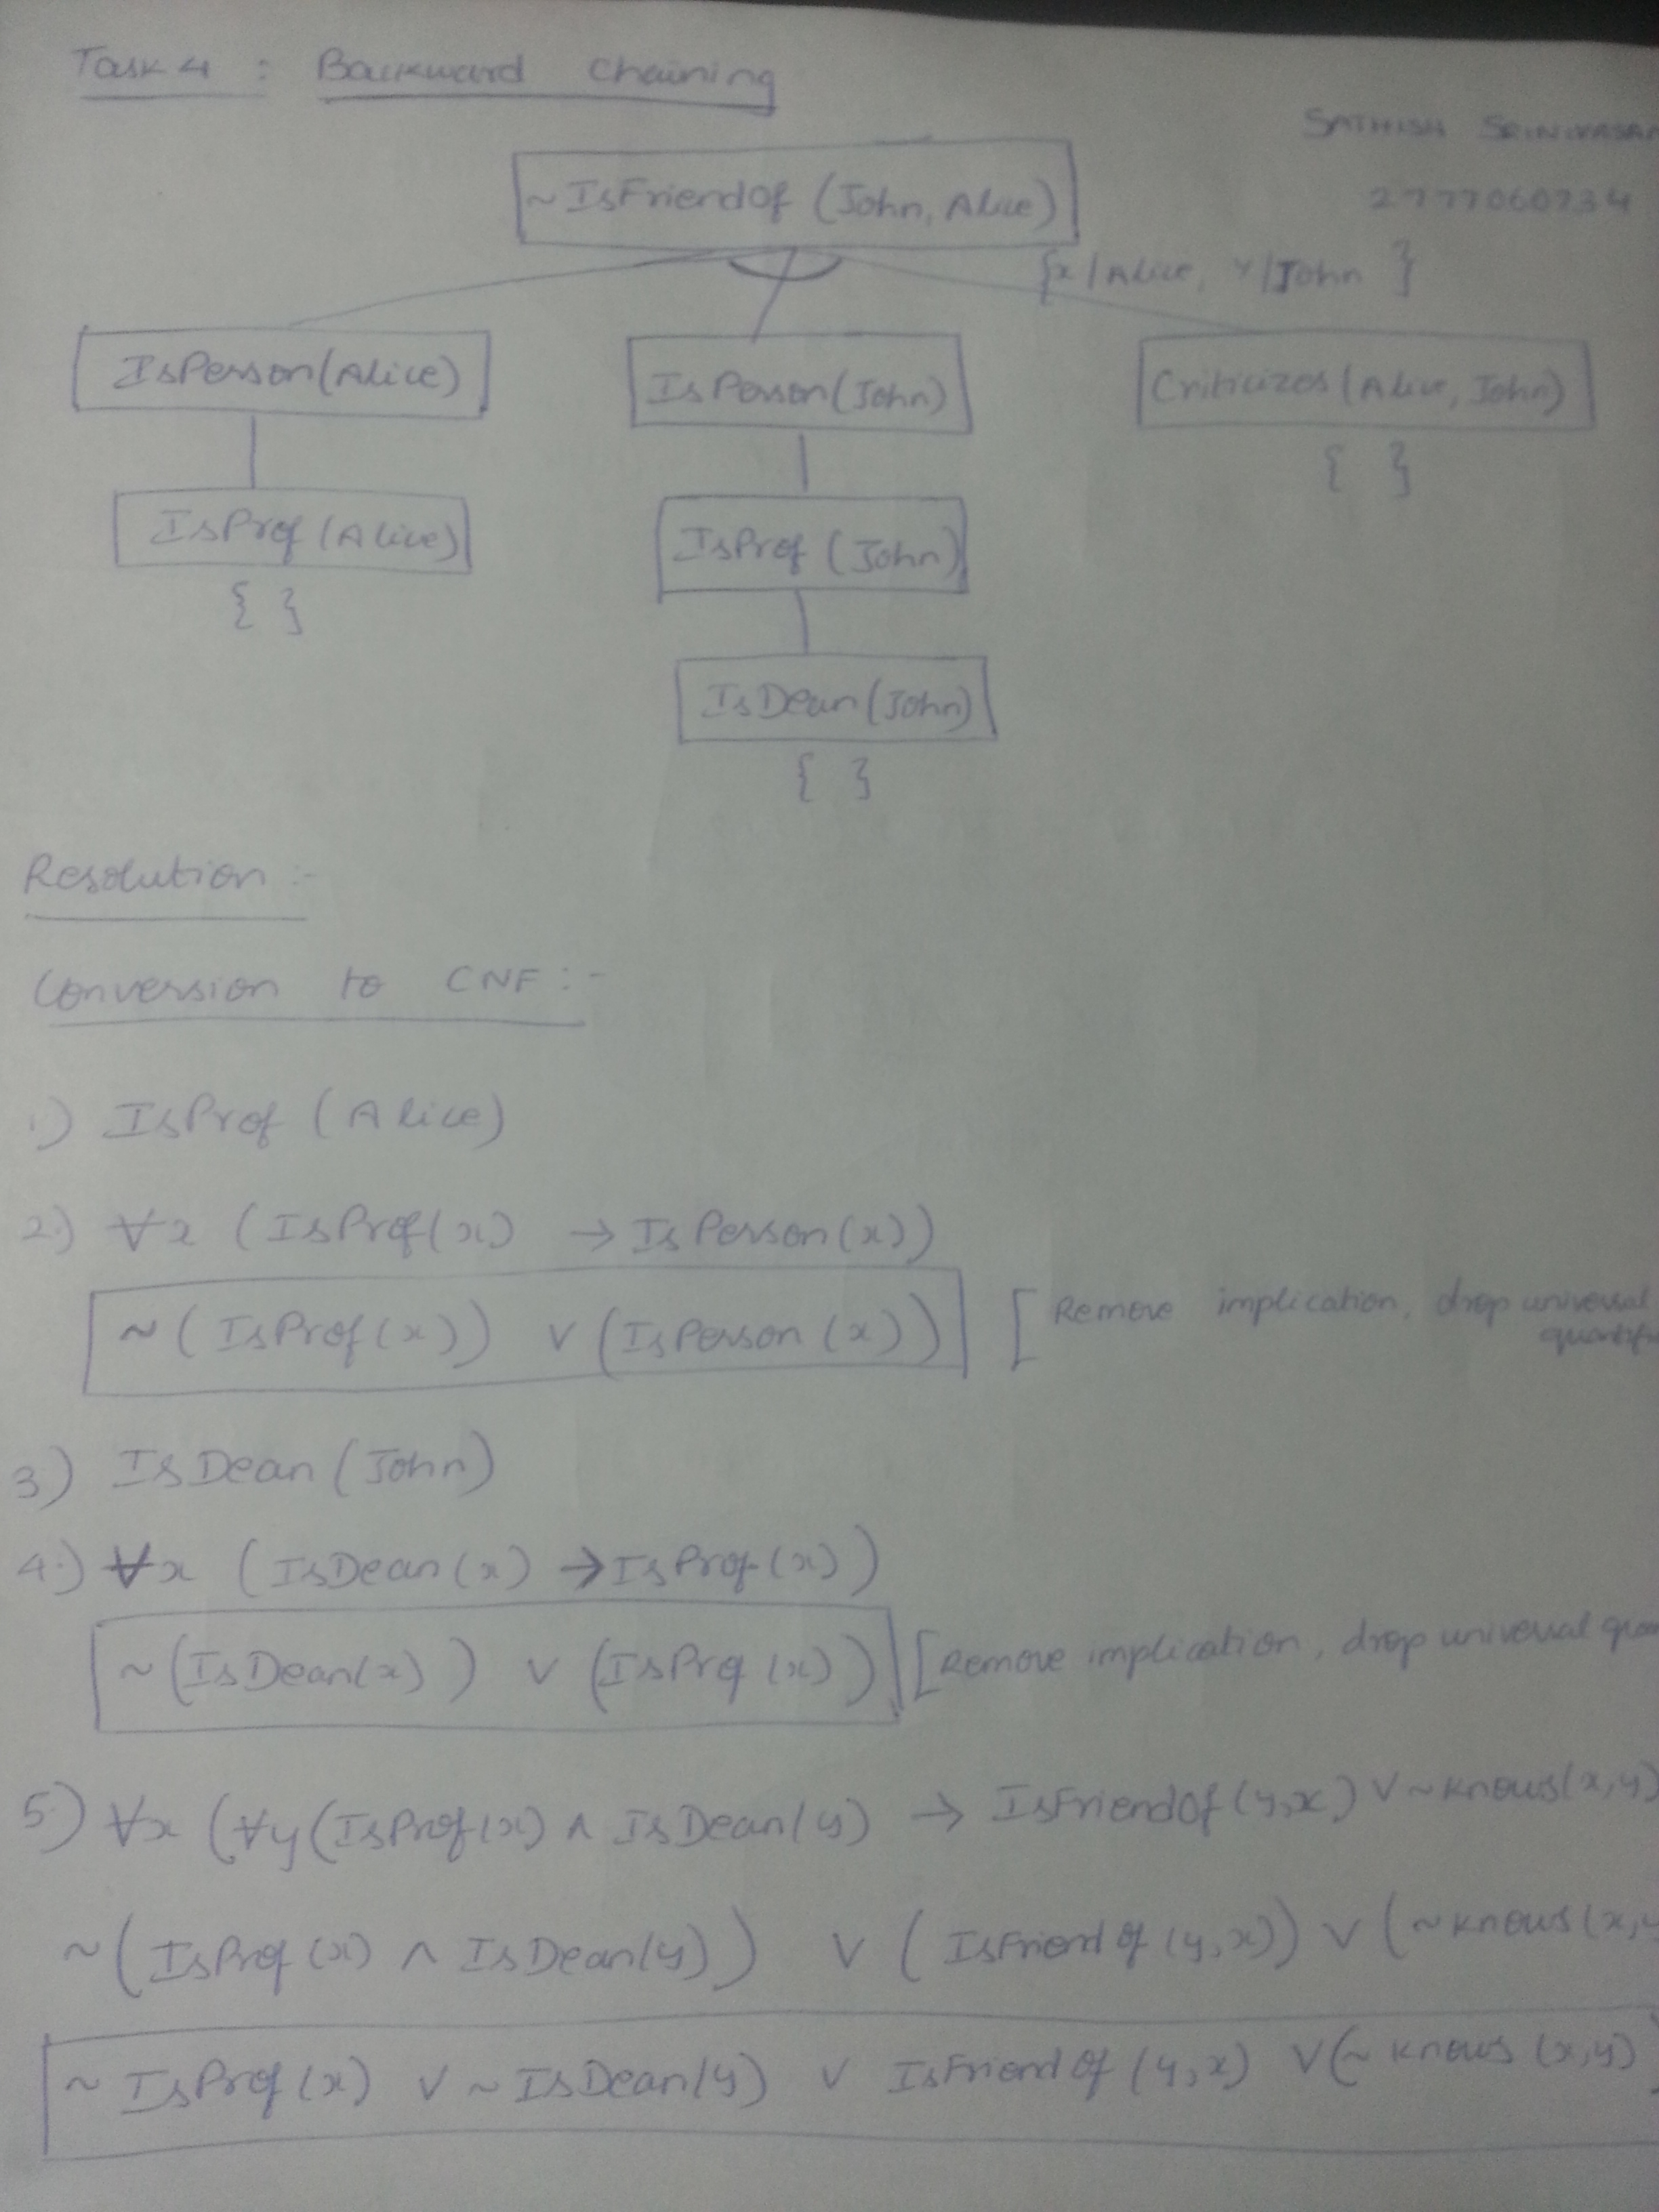 Task 4 : Backward Chaining
SATHISH
2777060734
~IsFriendOf (John, Alice)
{x/Alice, Y/John }
IsPerson(Alice) IsPerson(John) Criticizes(Alice, John)
{ }
IsProf (Alice) IsProf (John)
{ }
IsDean(John)
{ }
Resolution :-
Conversion to CNF :-
1) IsProf (Alice)
2.) ∀x (IsProf(x) → IsPerson(x))
~ (IsProf(x)) ∨ (IsPerson (x)) [ Remove implication, drop universal
3) IsDean (John)
4.) ∀x (IsDean(x) → IsProf(x))
~ (IsDean(x)) ∨ (IsProf (x)) [Remove implication, drop universal
5.) ∀x (∀y (IsProf(x) ∧ IsDean(y) → IsFriendOf (y,x) ∨ ~knows(x,y)
~ (IsProf (x) ∧ IsDean(y)) ∨ (IsFriendOf (y,x)) ∨ (~knows(x,y
~ IsProf (x) ∨ ~ IsDean(y) ∨ IsFriendOf (y,x) ∨ (~ knows (x,y)